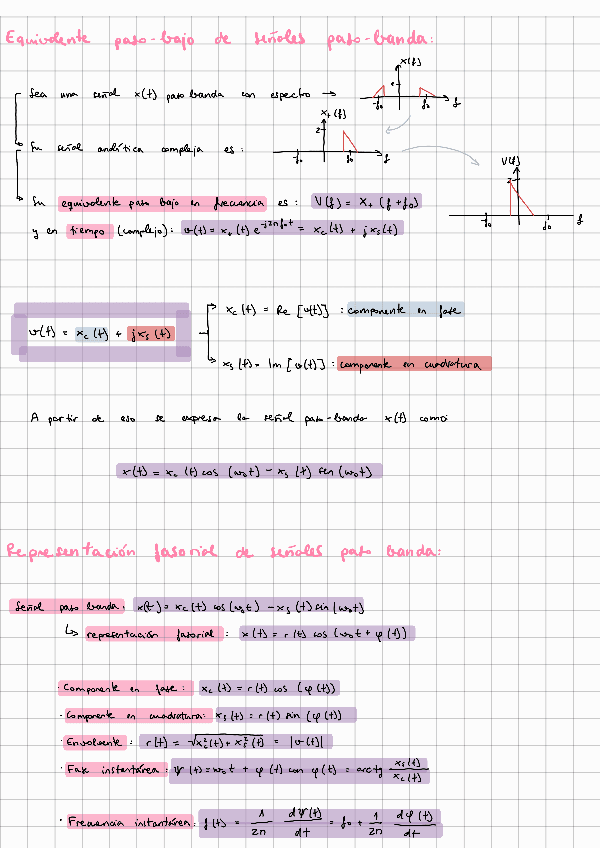 Equivalente paso-bajo de señales paso-banda:
X(f)
Sea una señal x(t) paso banda con espectro →
-f₀ f₀ f
X₊(f)
2
Su señal analítica compleja es:
-f₀ f₀ f
V(f)
2
Su equivalente paso bajo en frecuencia es: V(f) = X₊(f+f₀)
-f₀ f₀ f
y en tiempo (complejo): v(t) = x₊(t) e^-j2πf₀t = xc(t) + jxs(t)
xc(t) = Re [v(t)] : componente en fase
v(t) = xc(t) + jxs(t)
xs(t) = Im [v(t)] : componente en cuadratura
A partir de eso se expresa la señal paso-banda x(t) como:
x(t) = xc(t) cos (w₀t) - xs(t) sen (w₀t)
Representación fasorial de señales paso banda:
Señal paso banda: x(t) = xc(t) cos (w₀t) - xs(t) sin (w₀t)
↳ representación fasorial : x(t) = r(t) cos (w₀t + φ(t))
· Componente en fase : xc(t) = r(t) cos (φ(t))
· Componente en cuadratura: xs(t) = r(t) sin (φ(t))
· Envolvente : r(t) = √xc²(t) + xs²(t) = |v(t)|
· Fase instantánea: Ψ(t) = w₀t + φ(t) con φ(t) = arctg xs(t)/xc(t)
· Frecuencia instantánea: f(t) = 1/2π dΨ(t)/dt = f₀ + 1/2π dφ(t)/dt